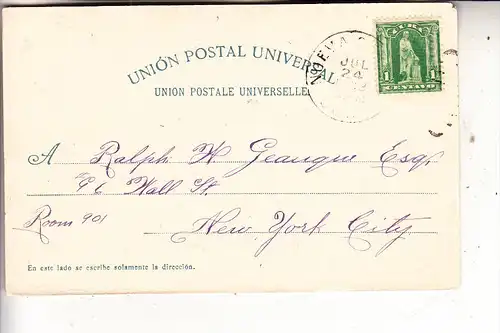 UNIÓN POSTAL UNIVERSAL
UNION POSTALE UNIVERSELLE
NUEVA
JUL
24
CUBA
1 CENTAVO 1
A Ralph H. Geauque Esq.
96 Wall St.
Room 901
New York City
En este lado se escribe solamente la dirección.